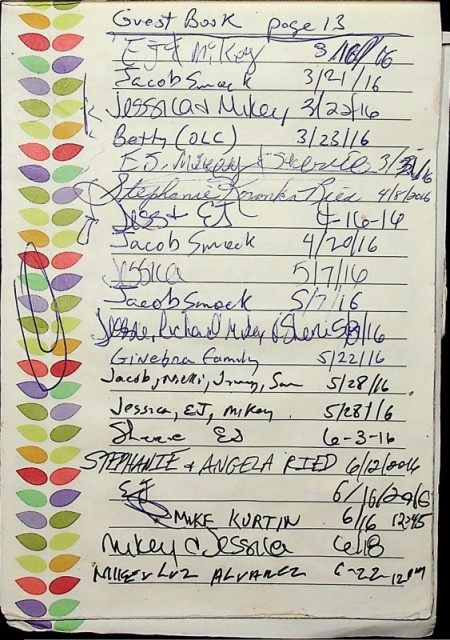 Guest Book page 13
EJ & Mikey 3/16/16
Jacob Smock 3/21/16
Jessica & Mikey 3/22/16
Betty (OLC) 3/23/16
E.J. Mikey & 3/
Stephanie Ried 4/8/2016
Jess & EJ 4-16-16
Jacob Smock 4/20/16
Jessica 5/7/16
Jacob Smock 5/7/16
Jessie, Richard Mikey & Sherie 5/8/16
Ginebra Family 5/22/16
Jacob, Nicki, Jimmy, Sam 5/28/16
Jessica, EJ, Mikey. 5/28/16
Sherie EJ 6-3-16
STEPHANIE & ANGELA RIED 6/12/2016
EJ 6/16/2016
MIKE KURTIN 6/16 12:45
Mikey & Jessica 6/18
MIKE & LUZ ALVAREZ 6-22-12 PM